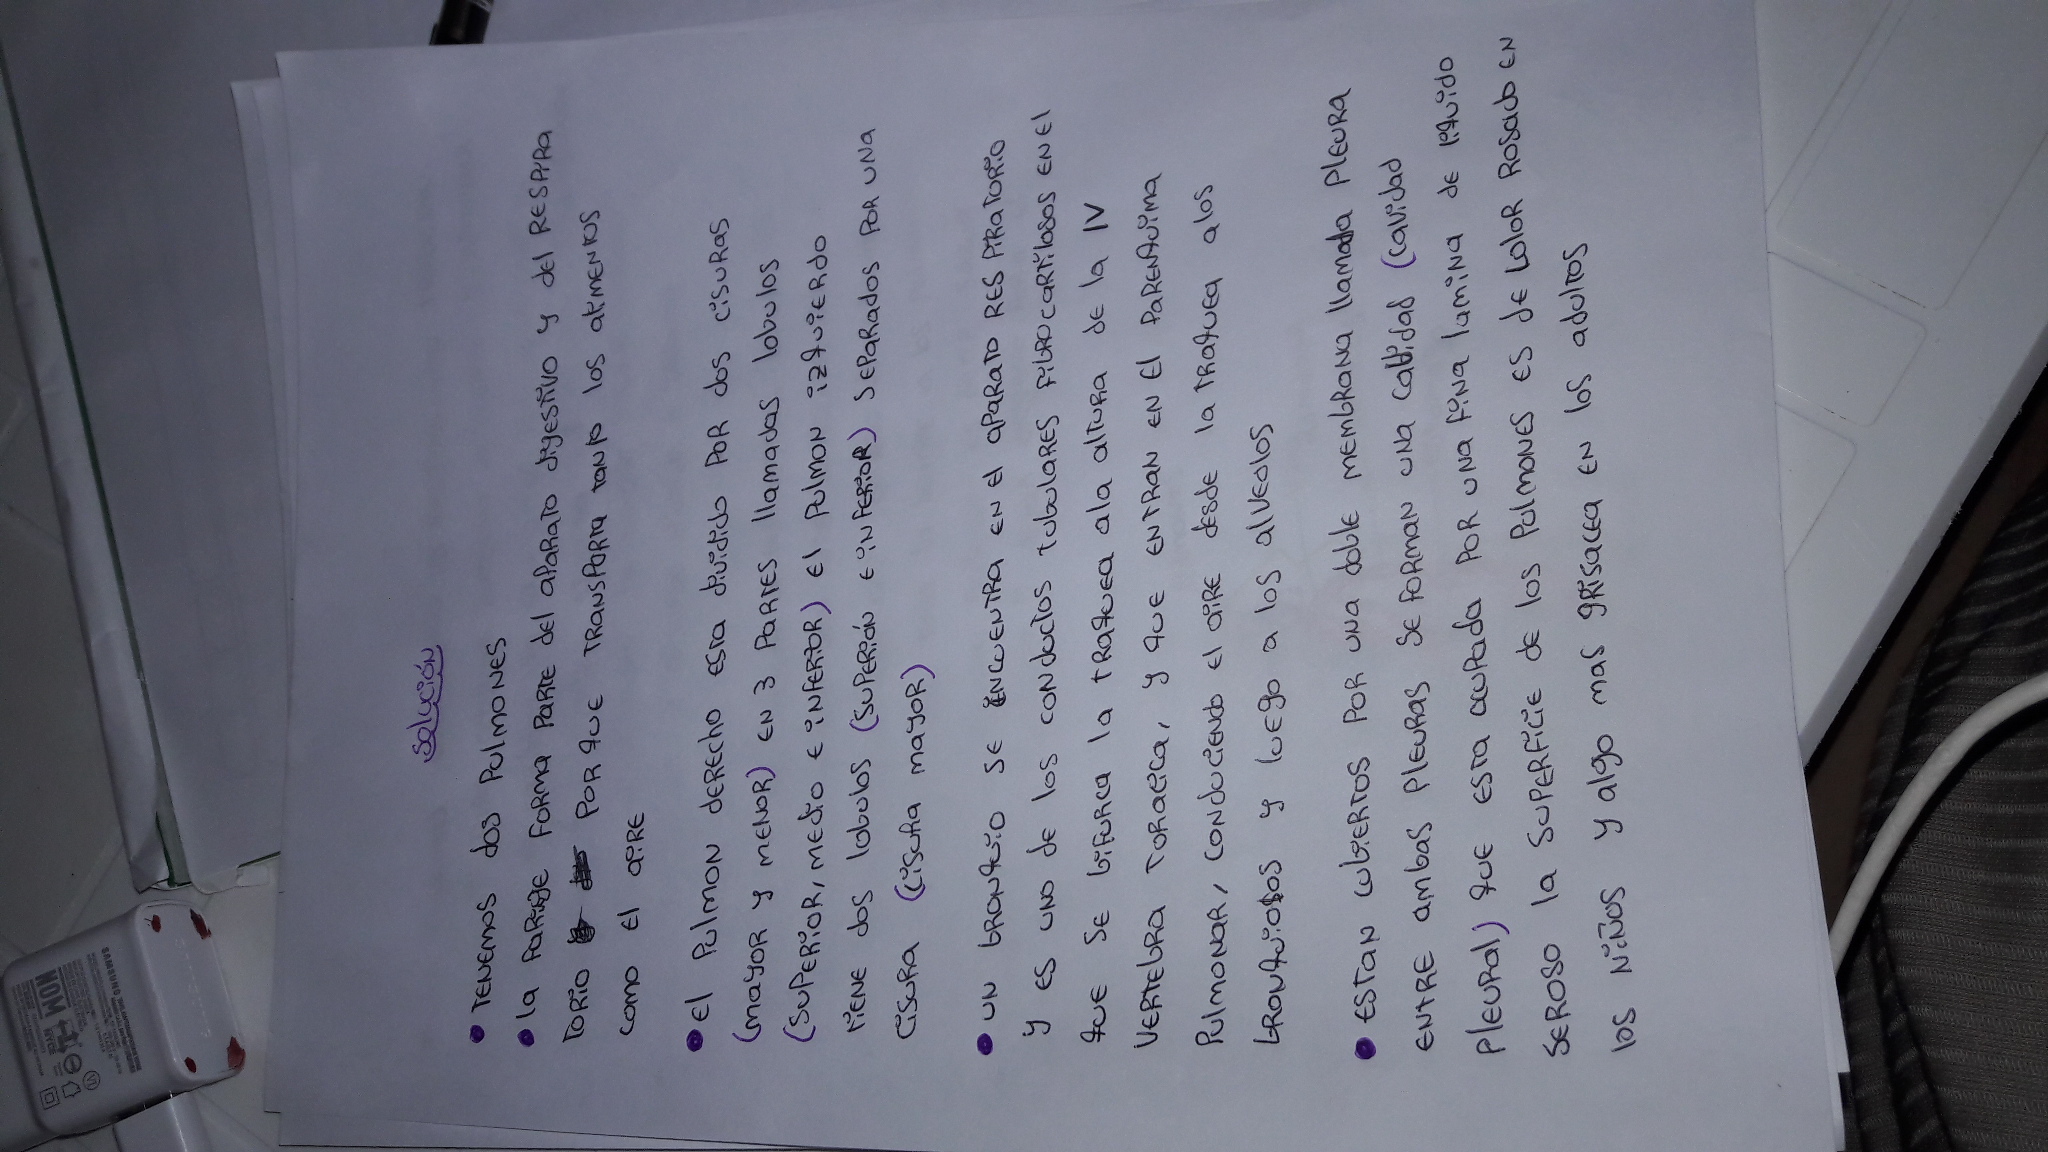 Solución
• Tenemos dos Pulmones
• La Faringe Forma Parte del aparato digestivo y del Respira
torio Por que Transporta tanto los alimentos
como el aire
• El Pulmon derecho esta dividido Por dos cisuras
(mayor y menor) en 3 Partes llamadas lobulos
(superior, medio e inferior) el Pulmon izquierdo
Tiene dos lobulos (superión e inferior) separados Por una
cisura (cisura mayor)
• un bronquio se encuentra en el aparato respiratorio
y es uno de los conductos tubulares Fibrocartilosos en el
que se bifurca la traquea ala altura de la IV
vertebra Toracica, y que entran en el Parenquima
Pulmonar, conduciendo el aire desde la traquea alos
bronquiolos y luego a los alveolos
• Estan cubiertos Por una doble membrana llamada Pleura
entre ambas Pleuras se forman una cabidad (cavidad
Pleural) que esta ocupada Por una Fina lamina de liquido
seroso la superficie de los Pulmones es de color Rosado en
los niños y algo mas grisacea en los adultos
SAMSUNG
NOM